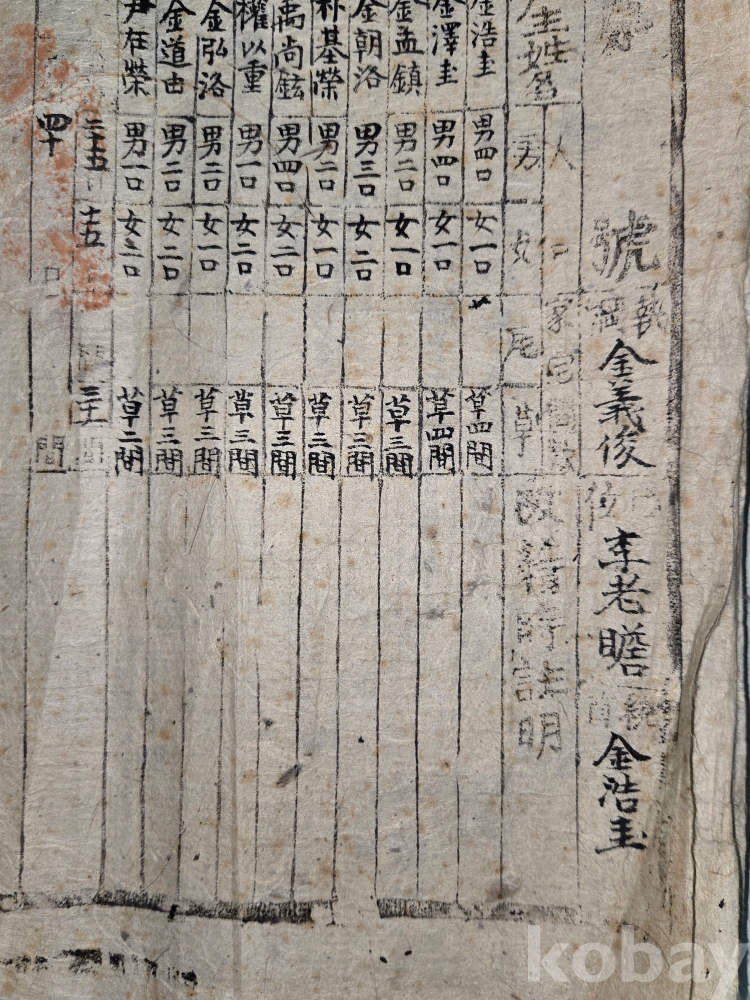 號 執綱 金義俊 李老瞻 統首 金浩圭
人口 家宅間數
主姓名 男 女 瓦 草 改籍時註明
金浩圭 男四口 女一口 草四間
金澤圭 男四口 女一口 草四間
金孟鎮 男二口 女一口 草三間
金朝洛 男三口 女二口 草三間
朴基榮 男二口 女一口 草三間
禹尚鉉 男四口 女二口 草三間
權以重 男一口 女二口 草三間
金弘洛 男二口 女一口 草三間
金道由 男二口 女二口 草三間
尹在榮 男一口 女二口 草二間
二十五 十五 間 三十一 間
四十 口 間
kobay